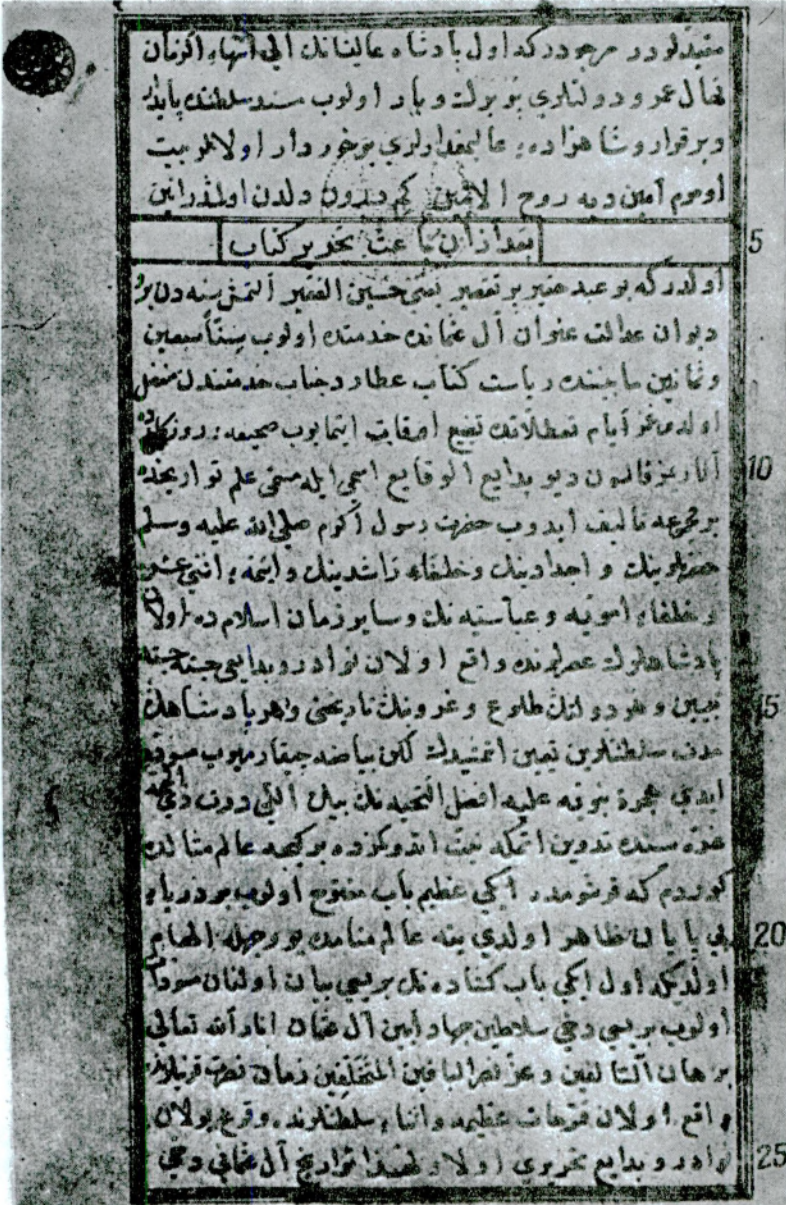 مقیدلودر مرجودرکه اول پادشاه عالیشانك الی انتهاء الزمان
نهال عمر و دولتلری پر برك و بار اولوب مسند سلطنتده پایدار
و برقرار و شاهزادهء عالیمقدارلری برخوردار اولالر بیت
اومرم آمین دیه روح الامین کم درون دلدن اولندر انین
بعد از آن باعث تحریر کتاب
5
اولدرکه بو عبد حقیر پر تقصیر یعنی حسین الفقیر التمش سنه دن برو
دیوان عدالت عنوان آل عثمانده خدمتده اولوب ستا سبعین
و ثمانین مابیننده ریاست کتاب عطارد جناب خدمتندن منفصل
اولدیغمز ایام تعطلاتده تضیع اوقات ایتمایوب صحیفهء روزکارده
10
آثارمز قالسون دیو بدایع الوقایع اسمی ایله مسمی علم تواریخده
بر مجموعه تالیف ایدوب حضرت رسول اکرم صلی الله علیه وسلم
حضرتلرینك و اجدادینك و خلفاء راشدینك و ائمهء اثنی عشر
و خلفاء امویه و عباسیه نك و سایر زمان اسلامده اولان
پادشاهلرك عصرلرنده واقع اولان نوادر و بدایعی جسته جسته
15
تبیین و هر دولتك طلوع و غروبنك تاریخنی و هر پادشاهك
مدت سلطنتلرین تعیین اتمشیدك لکن بیاضه چیقارمیوب مسوده
ایدی هجرة نبویه علیه افضل التحیه نك بیك اللی درت ذی الحجه
غره سنده تدوین اتمکه نیت اتدوکمزده بر کیجه عالم مثالده
کوردم که قرشومده ایکی عظیم باب مفتوح اولوب بر دریای
20
بی پایان ظاهر اولدی ینه عالم منامده بو وجهله الهام
اولدیکه اول ایکی باب کشاده نك بریسی بیان اولنان مسودات
اولوب بریسی دخی سلاطین جهاد آیین آل عثمان انار الله تعالی
برهان السالفین و عز نصر الباقین المتخلفین زمان نصرت قرینلرنده
واقع اولان فتوحات عظیمه و اثناء سلطنتلرنده وقوع بولان
25
نوادر و بدایع تحریری اولا و لهذا تواریخ آل عثمانی دخی